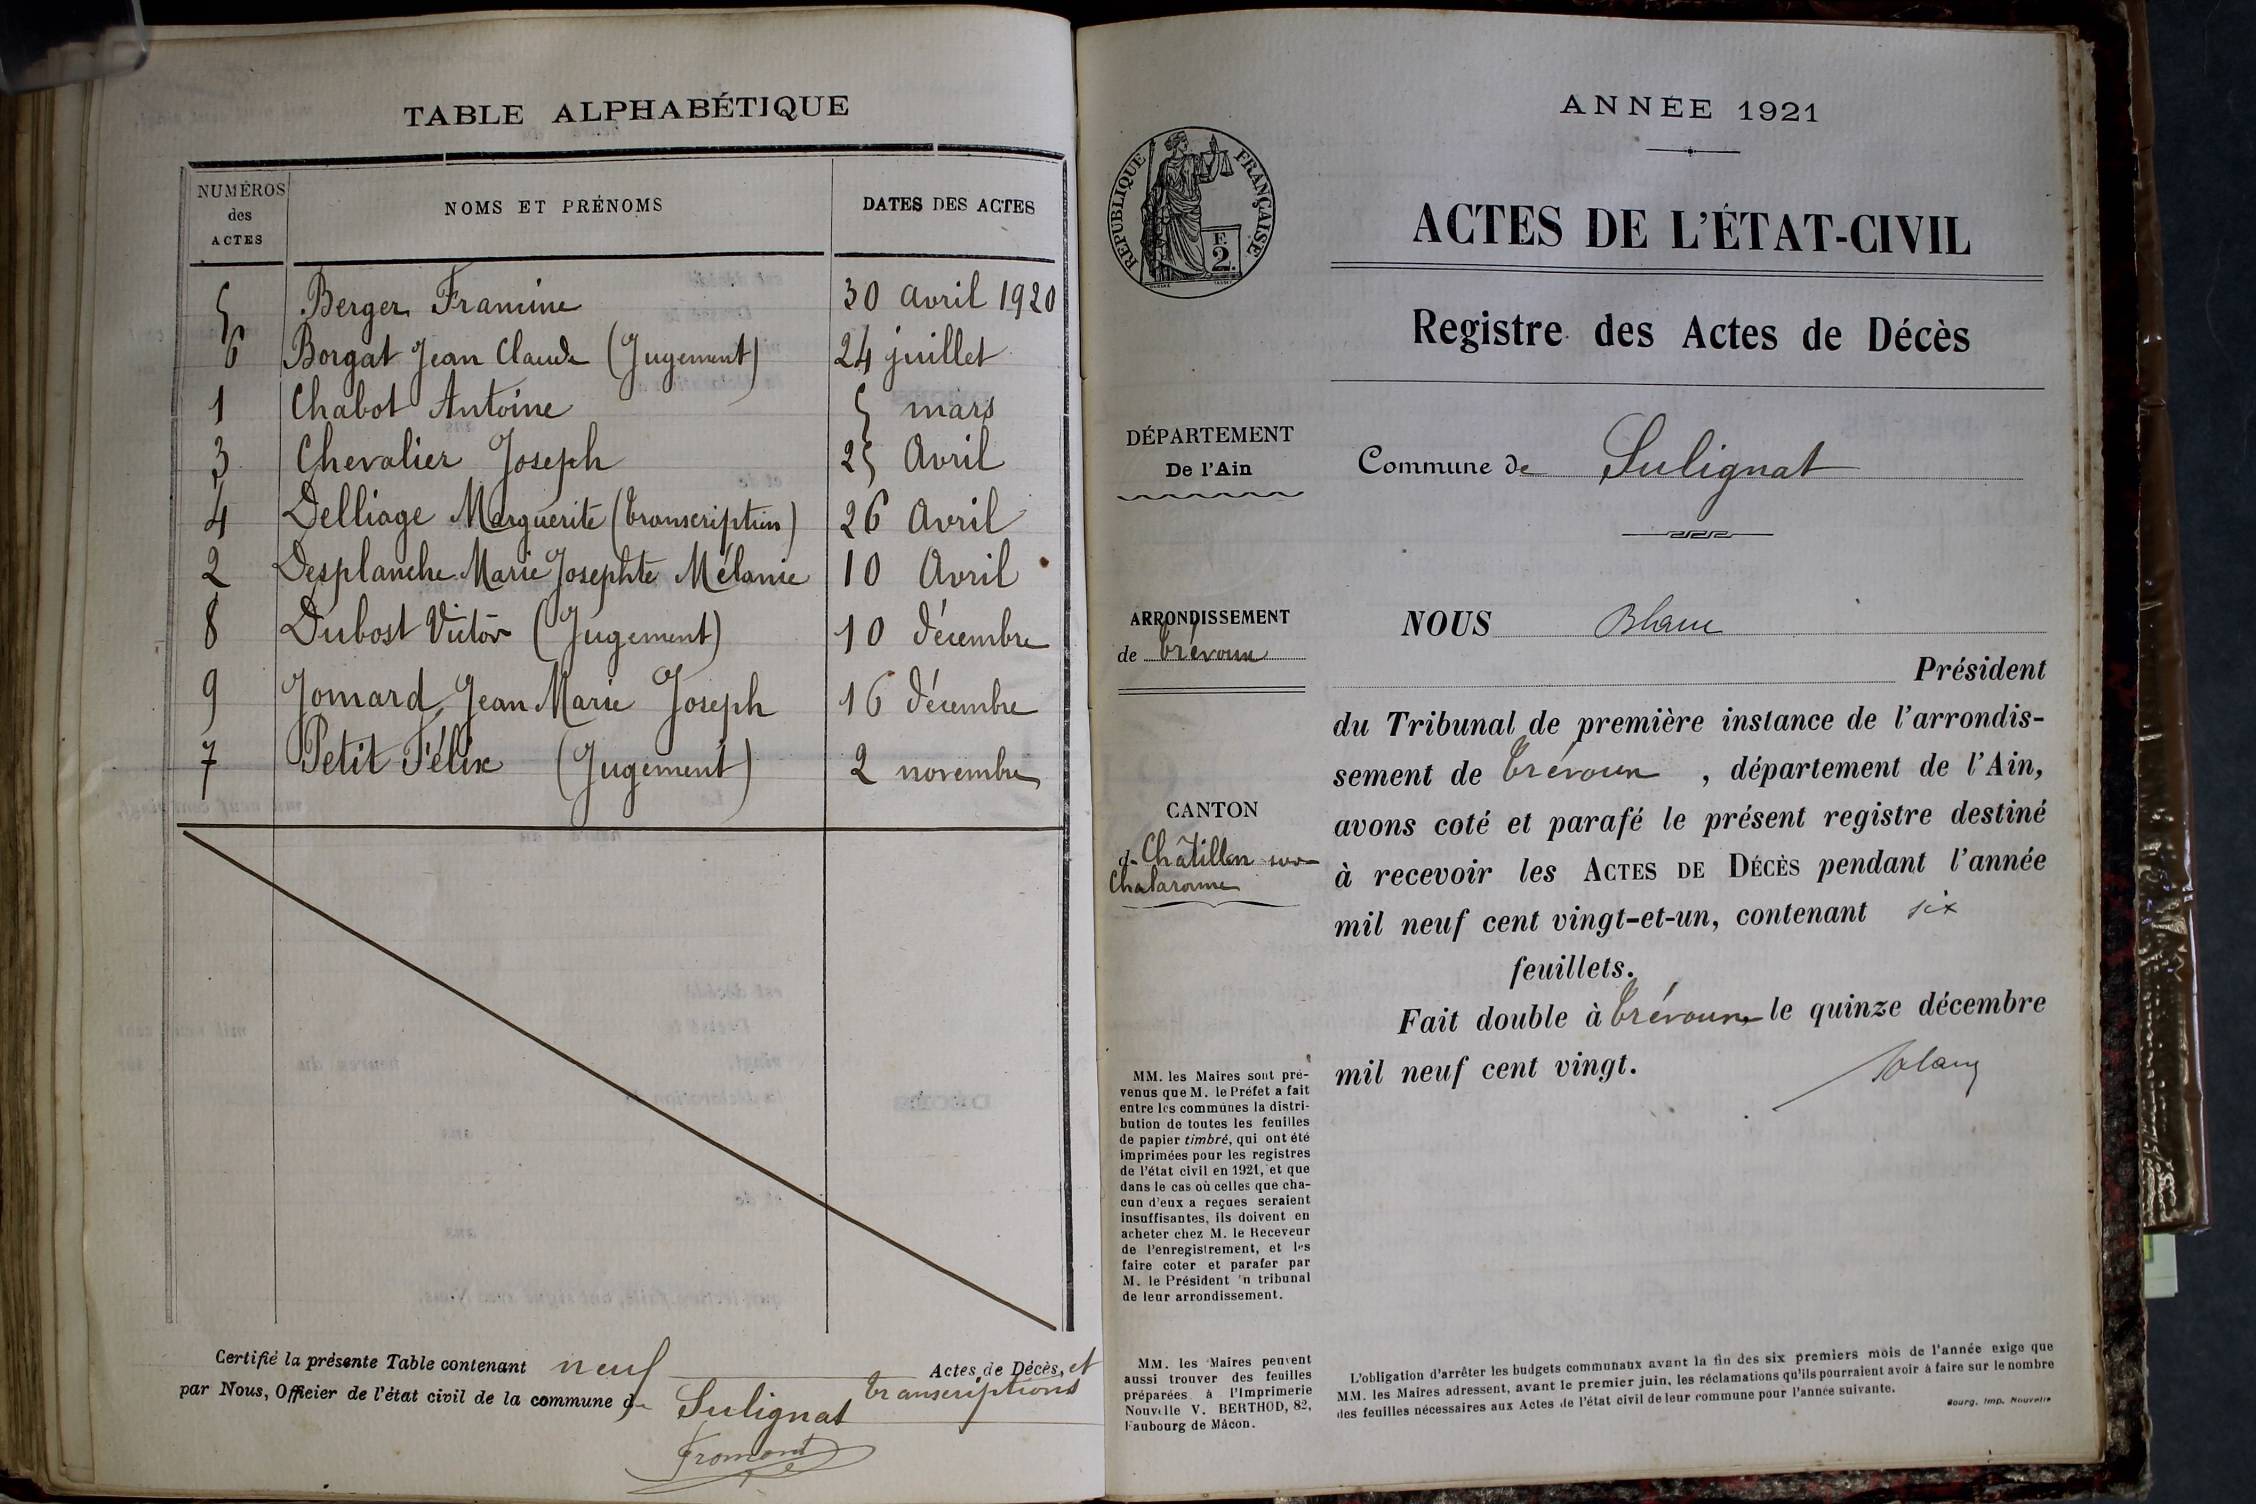 TABLE ALPHABÉTIQUE
NUMÉROS des ACTES NOMS ET PRÉNOMS DATES DES ACTES
5 Berger Francine 30 avril 1920
6 Borgat Jean Claude (Jugement) 24 juillet
1 Chabot Antoine 5 mars
3 Chevalier Joseph 25 Avril
4 Delliage Marguerite (transcription) 26 Avril
2 Desplanche Marie Josephte Mélanie 10 Avril
8 Dubost Victor (Jugement) 10 décembre
9 Jomard Jean Marie Joseph 16 décembre
7 Petit Félix (Jugement) 2 novembre
Certifié la présente Table contenant neuf Actes de Décès, et transcriptions
par Nous, Officier de l'état civil de la commune de Sulignat
Fromont
ANNÉE 1921
RÉPUBLIQUE FRANÇAISE
F.
2.
ACTES DE L'ÉTAT-CIVIL
Registre des Actes de Décès
DÉPARTEMENT
De l'Ain
Commune de Sulignat
ARRONDISSEMENT
de Trévoux
CANTON
de Châtillon sur
Chalaronne
NOUS Blanc
Président
du Tribunal de première instance de l'arrondis-
sement de Trévoux, département de l'Ain,
avons coté et parafé le présent registre destiné
à recevoir les ACTES DE DÉCÈS pendant l'année
mil neuf cent vingt-et-un, contenant six
feuillets.
Fait double à Trévoux le quinze décembre
mil neuf cent vingt.
Blanc
MM. les Maires sont pré-
venus que M. le Préfet a fait
entre les communes la distri-
bution de toutes les feuilles
de papier timbré, qui ont été
imprimées pour les registres
de l'état civil en 1921, et que
dans le cas où celles que cha-
cun d'eux a reçues seraient
insuffisantes, ils doivent en
acheter chez M. le Receveur
de l'enregistrement, et les
faire coter et parafer par
M. le Président 'n tribunal
de leur arrondissement.
MM. les Maires peuvent
aussi trouver des feuilles
préparées à l'Imprimerie
Nouvelle V. BERTHOD, 82,
Faubourg de Mâcon.
L'obligation d'arrêter les budgets communaux avant la fin des six premiers mois de l'année exige que
MM. les Maires adressent, avant le premier juin, les réclamations qu'ils pourraient avoir à faire sur le nombre
des feuilles nécessaires aux Actes de l'état civil de leur commune pour l'année suivante.
Bourg, Imp. Nouvelle